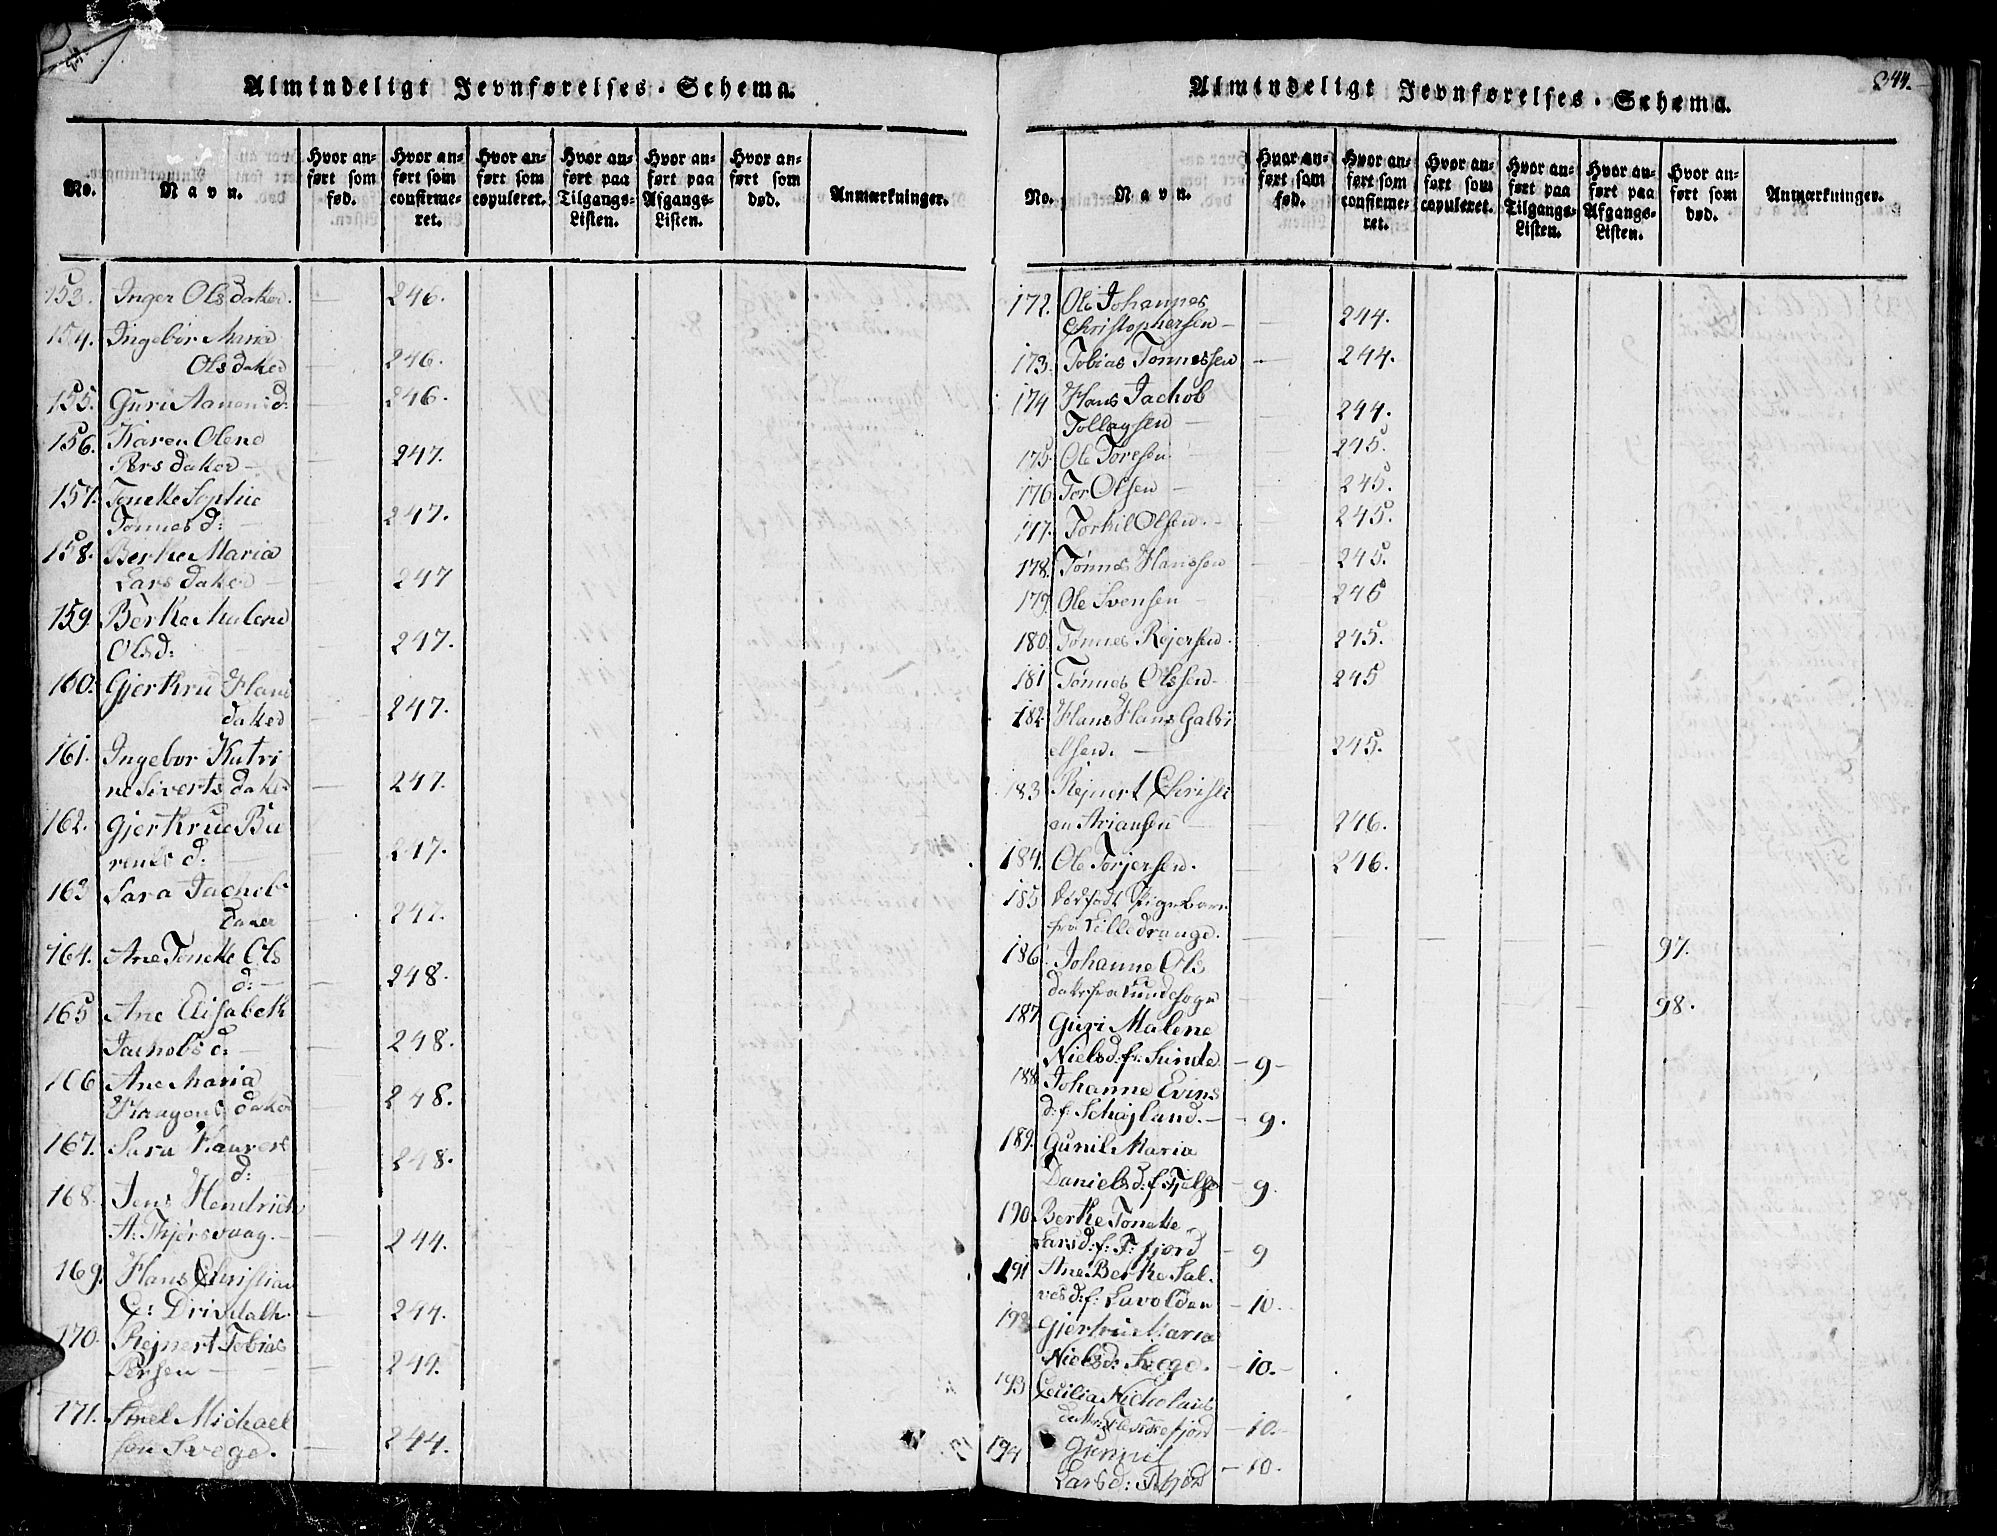 Almindeligt Jevnførelses-Schema.
No.
Navn.
Hvor anført som fød.
Hvor anført som confirmeret.
Hvor anført som copuleret.
Hvor anført paa Tilgangs-Listen.
Hvor anført paa Afgangs-Listen.
Hvor anført som død.
Anmærkninger.
153. Inger Olsdatter. 246.
154. Ingebor Maria
Olsdatter 246.
155. Guri Aanensd: 246.
156. Karen Olene
Persdatter 247.
157. Tonette Sophie
Tønnesd: 247.
158. Berthe Maria
Larsdatter 247
159. Berthe Malene
Olsd: 247.
160. Gjertru Hans
datter 247.
161. Ingebor Katri
ne Sivertsdatter 247.
162. Gjertrue Bu
rentsd. 247.
163 Sara Jachobs
datter 247.
164. Ane Tonette Ols
d: 248.
165 Ane Elisabeth
Jachobsd: 248.
166 Ane Maria
Haagensdatter 248.
167. Sara Haavers
d: 248.
168. Jens Hendrich
A. Thjørsvaag. 244.
169. Hans Christian
C: Drivdalh. 244.
170. Rejnert Tobias
Persen 244.
171. Emel Michael
sen Svege. 244.
844.
Almindeligt Jevnførelses-Schema.
No.
Navn.
Hvor anført som fød.
Hvor anført som confirmeret.
Hvor anført som copuleret.
Hvor anført paa Tilgangs-Listen.
Hvor anført paa Afgangs-Listen.
Hvor anført som død.
Anmærkninger.
172. Ole Johannes
Christophersen 244.
173. Tobias Tønnessen 244.
174 Hans Jachob
Tollagsen 244.
175. Ole Toresen 245.
176 Tor Olsen 245.
177. Torkil Olsen. 245.
178. Tønnes Hanssen 245.
179. Ole Svensen 246
180. Tønnes Rejersen. 245.
181 Tønnes Olssen 245
182. Hans Hans Gabri
elsen. 245.
183 Rejnert Christi
an Ariansen 246.
184. Ole Torjersen. 246.
185 Dødfødt Pigebarn
fra Lilledrange. 97.
186. Johanne Ols
datr fra Lunde Sogn 98.
187 Guri Malene
Nielsd: fr: Sunde 9
188 Johanne Evins
d: f: Schøjland. 9.
189. Gunil Maria
Danielsd: f: Fjelse 9.
190. Berthe Tonette
Larsd: f: F: fjord 9
191 Ane Berthe Sal
vesd: f: Lavolden 10.
192 Gjertru Maria
Nielsd: Svege. 10.
193 Cecilia Nicholais
datr: Flekkefjord 10.
194 Gunnil
Larsd: F:fjord 10.